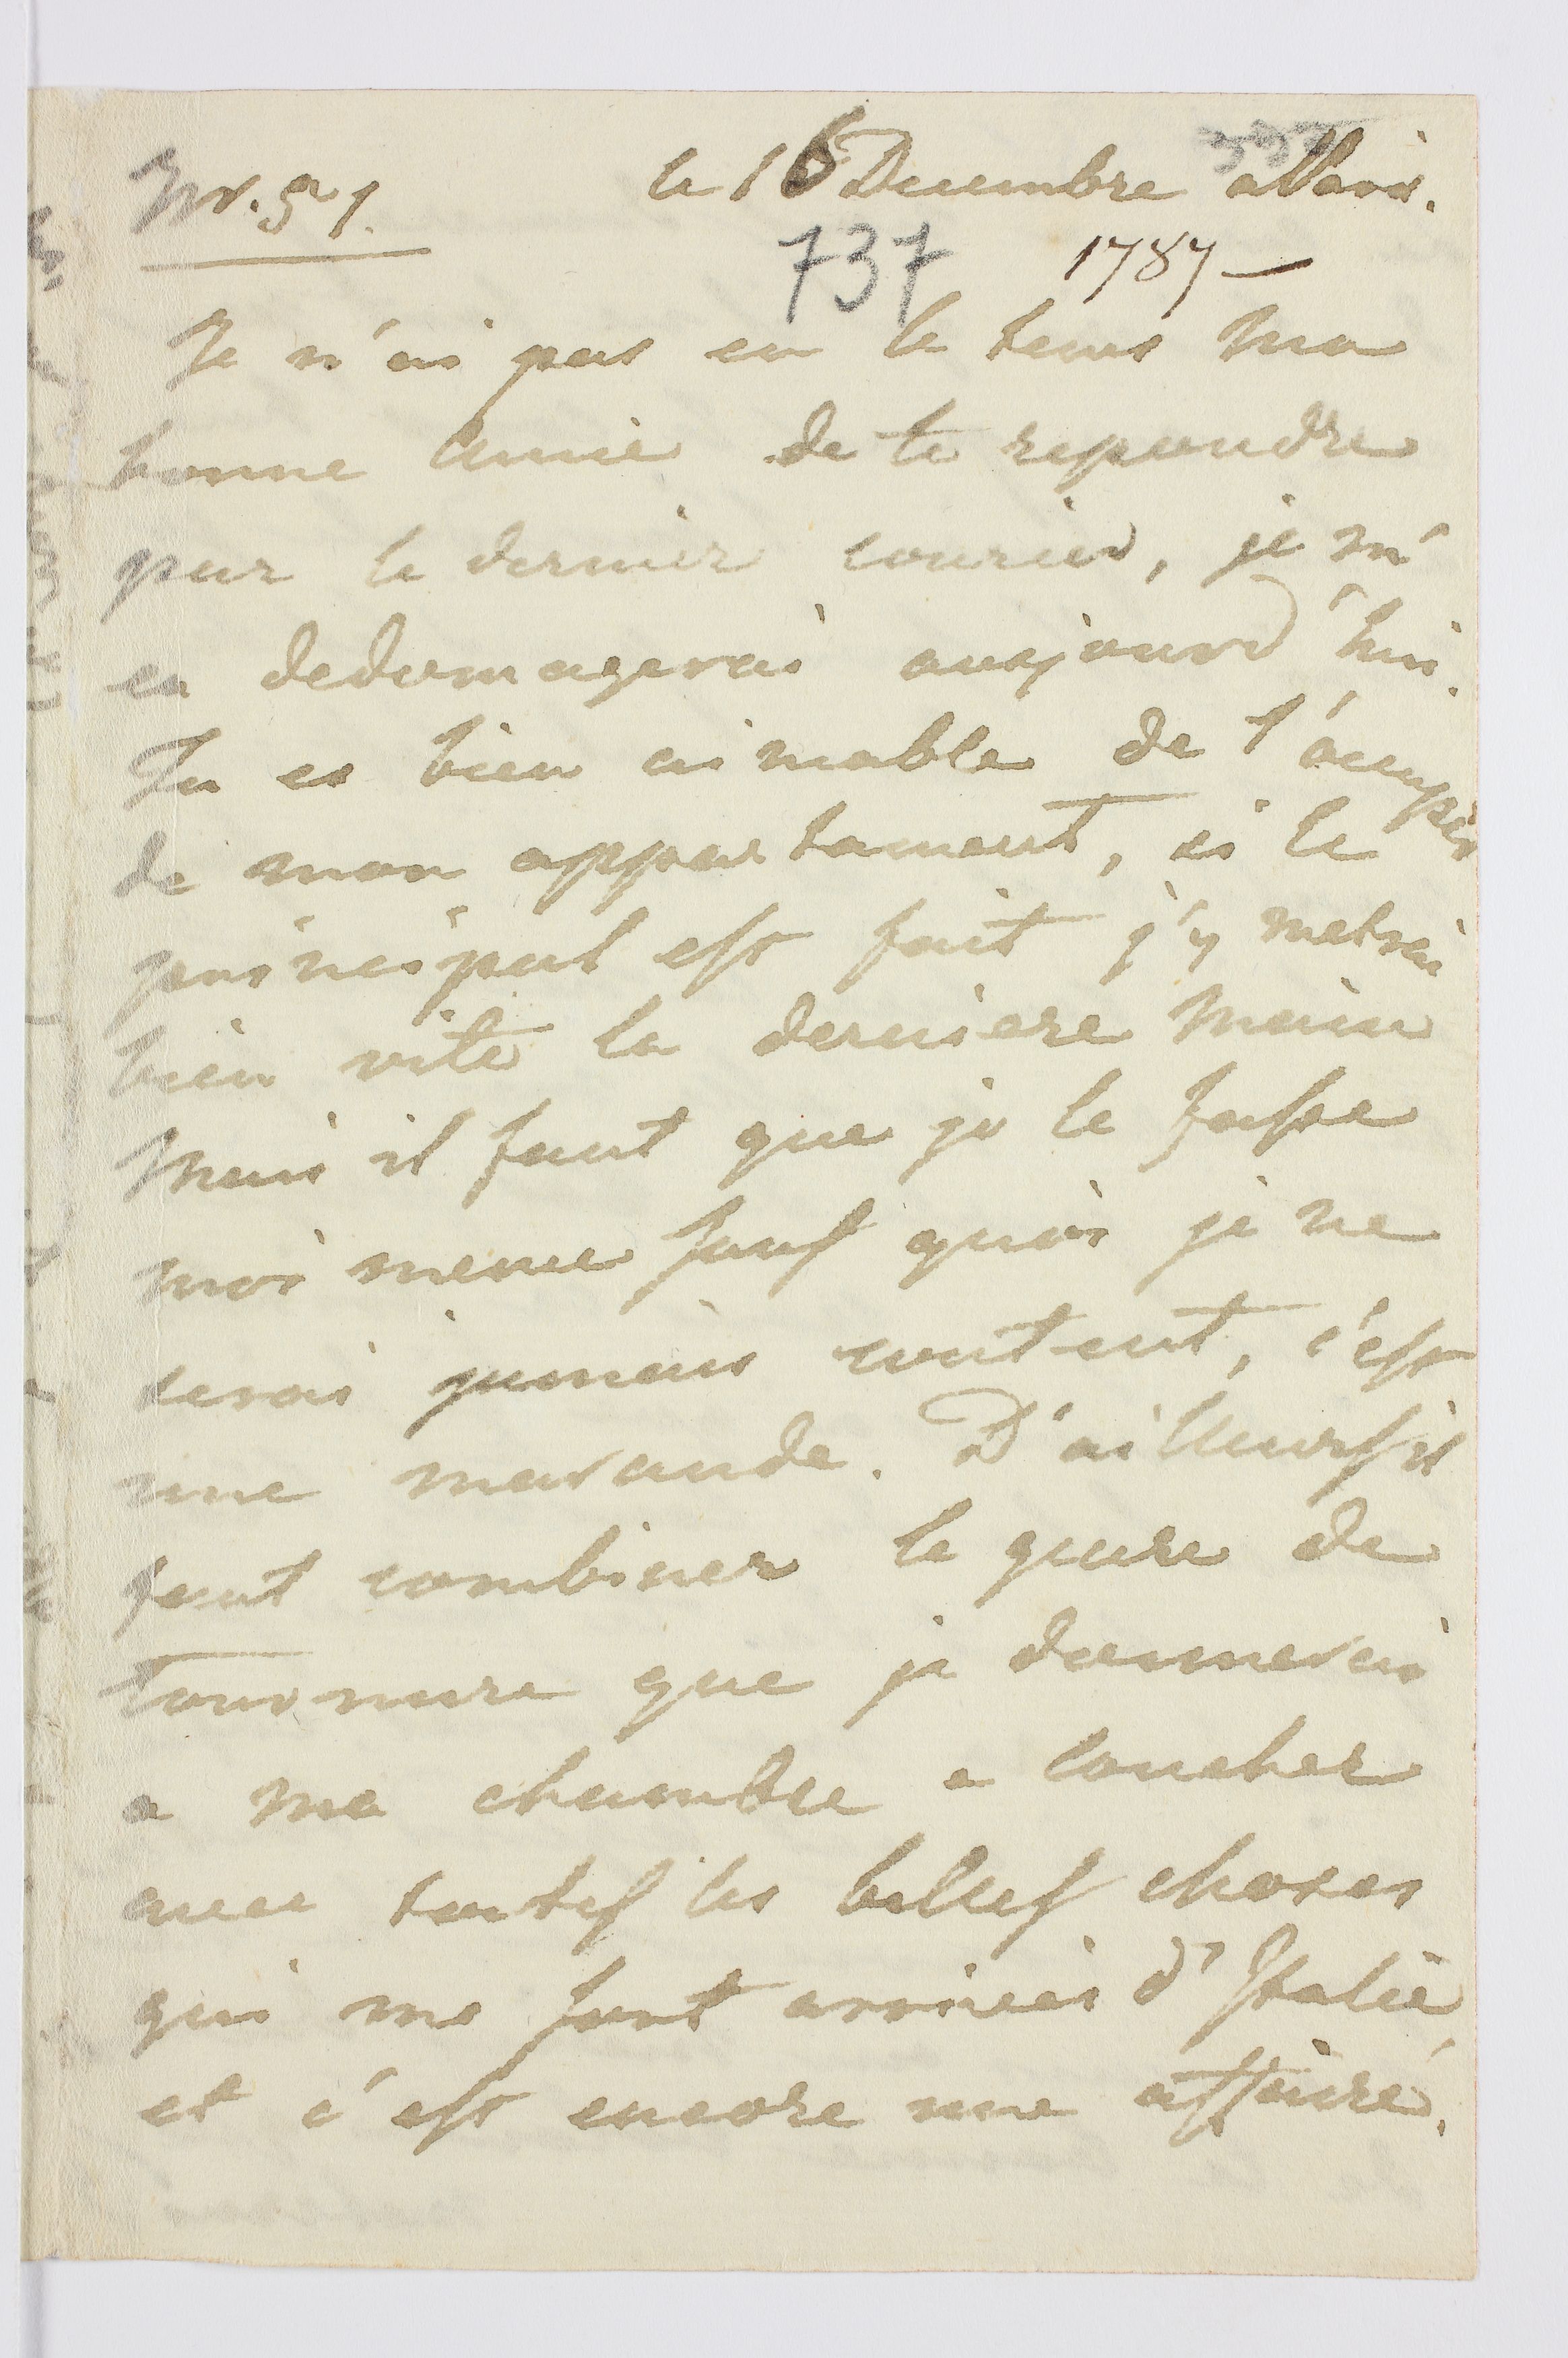 Nr. 51. le 16 Decembre a Paris.
737 1787 —
Je n'ai pas eu le tems ma
bonne Amie de te repondre
par le dernier courier, je m'
en dedomagerai aujourd'hui.
Tu es bien aimable de t'ocuper
de mon appartament, si le
principal est fait j'y metrai
bien vite la derniere main
Mais il faut que je le fasse
moi meme sauf quoi je ne
serai jamais content, c'est
une marande. D'ailleurs il
faut combiner le genre de
tournure que je donnerai
a ma chambre a coucher
avec toutes les belles choses
qui me sont arrivées d'Italie,
et c'est encore une affaire.